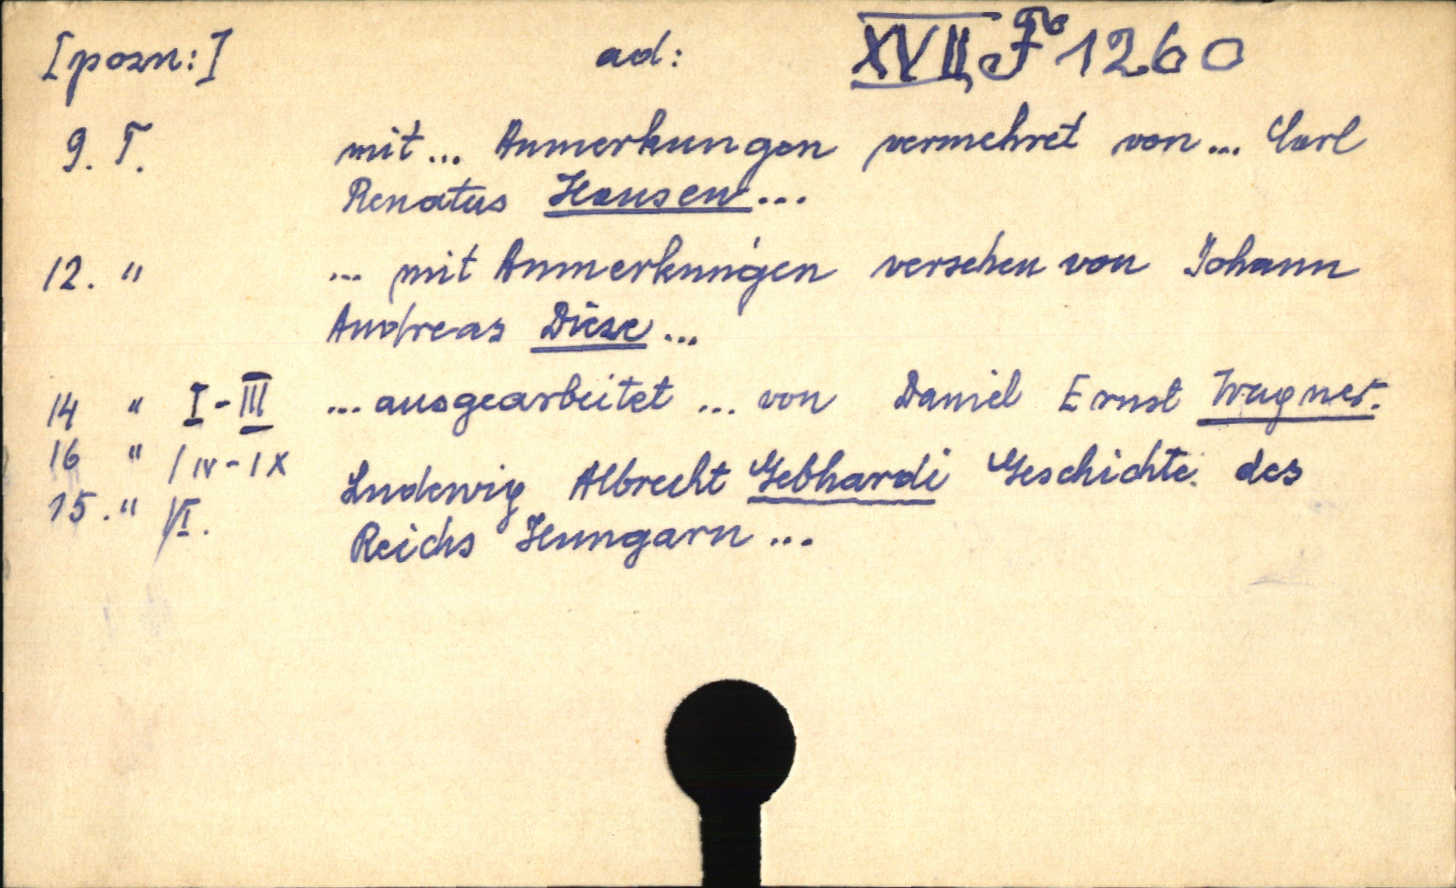 [pozn:] ad: XVII, F 1260
9. T. mit ... Anmerkungen vermehret von ... Carl
Renatus Hausen ...
12. " ... mit Anmerkungen versehen von Johann
Andreas Dieze ...
14 " I - III ... ausgearbeitet ... von Daniel Ernst Wagner.
16 " / IV - IX
Ludewig Albrecht Gebhardi Geschichte des
15. " VI.
Reichs Hungarn ...